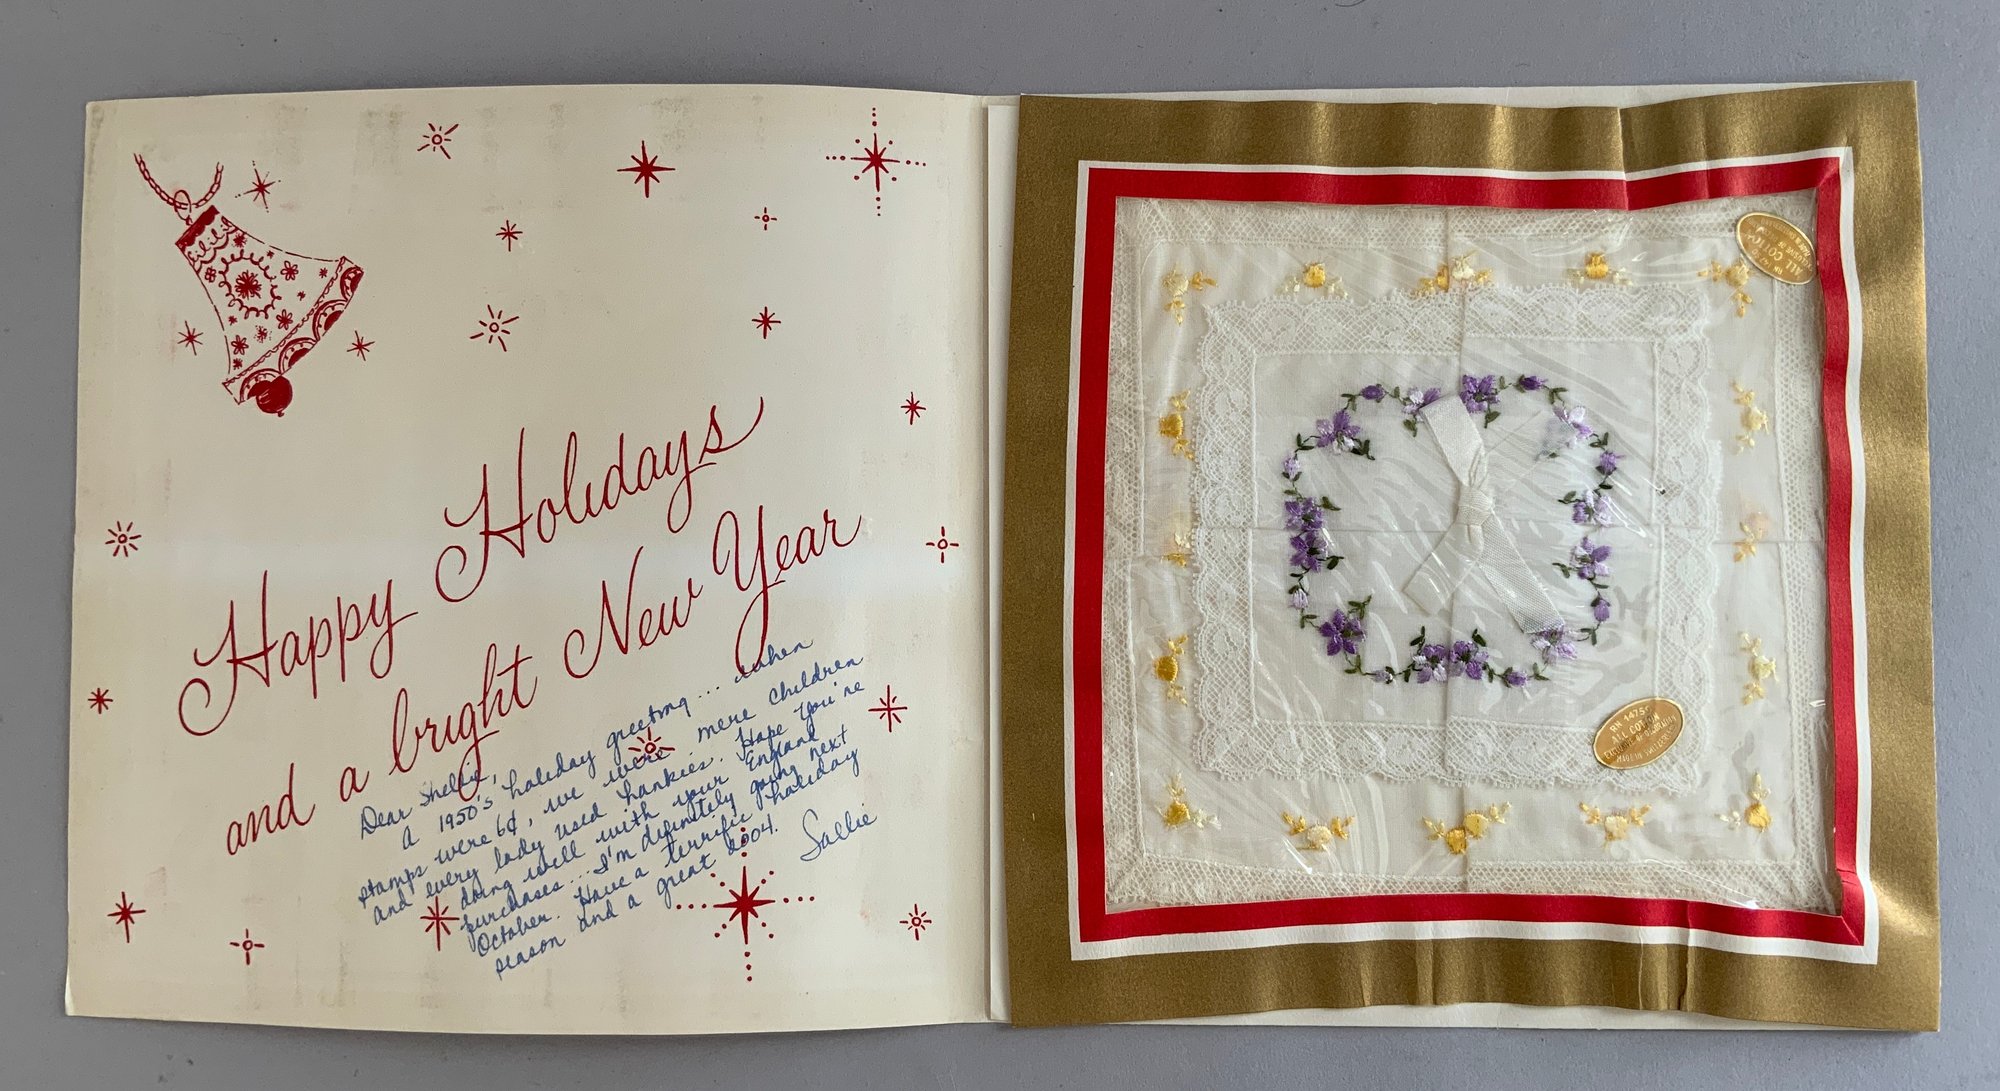 Happy Holidays
and a bright New Year
Dear Shellie,
A 1950's holiday greeting... when
stamps were 6¢, we were mere children
and every lady used hankies. Hope you're
doing well with your England
purchases... I'm definitely going next
October. Have a terrific holiday
season and a great 2004.
Sallie
ALL COTTON
RN 14759
ALL COTTON
EXCLUSIVE OF DECORATION
MADE IN SWITZERLAND